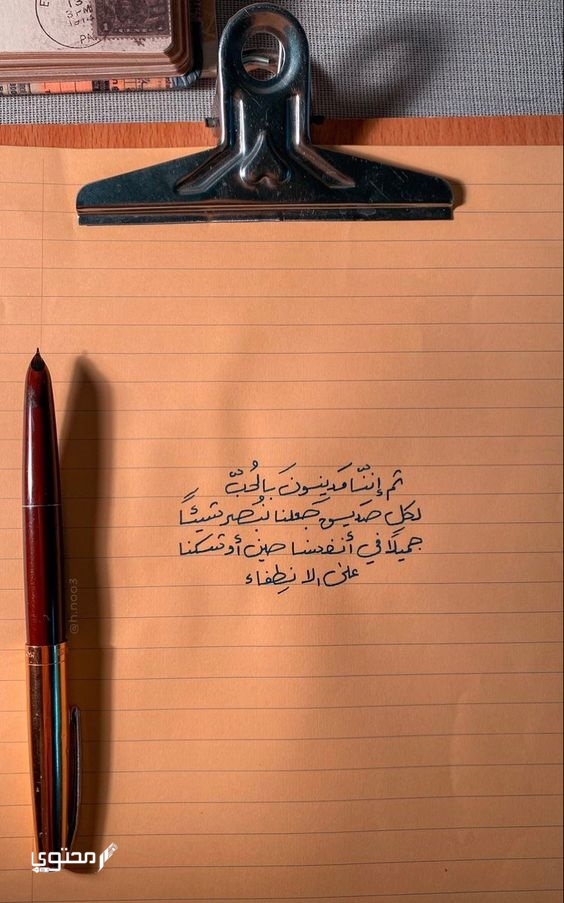 3 PM
1914
PA
ثم إننّا مَدينونَ بالحُبّ
لكل صَديق جعلنا نُبصر شيئاً
جميلًا في أنفسنا حين أوشكنا
على الانطِفاء
@h.noo3
محتوى